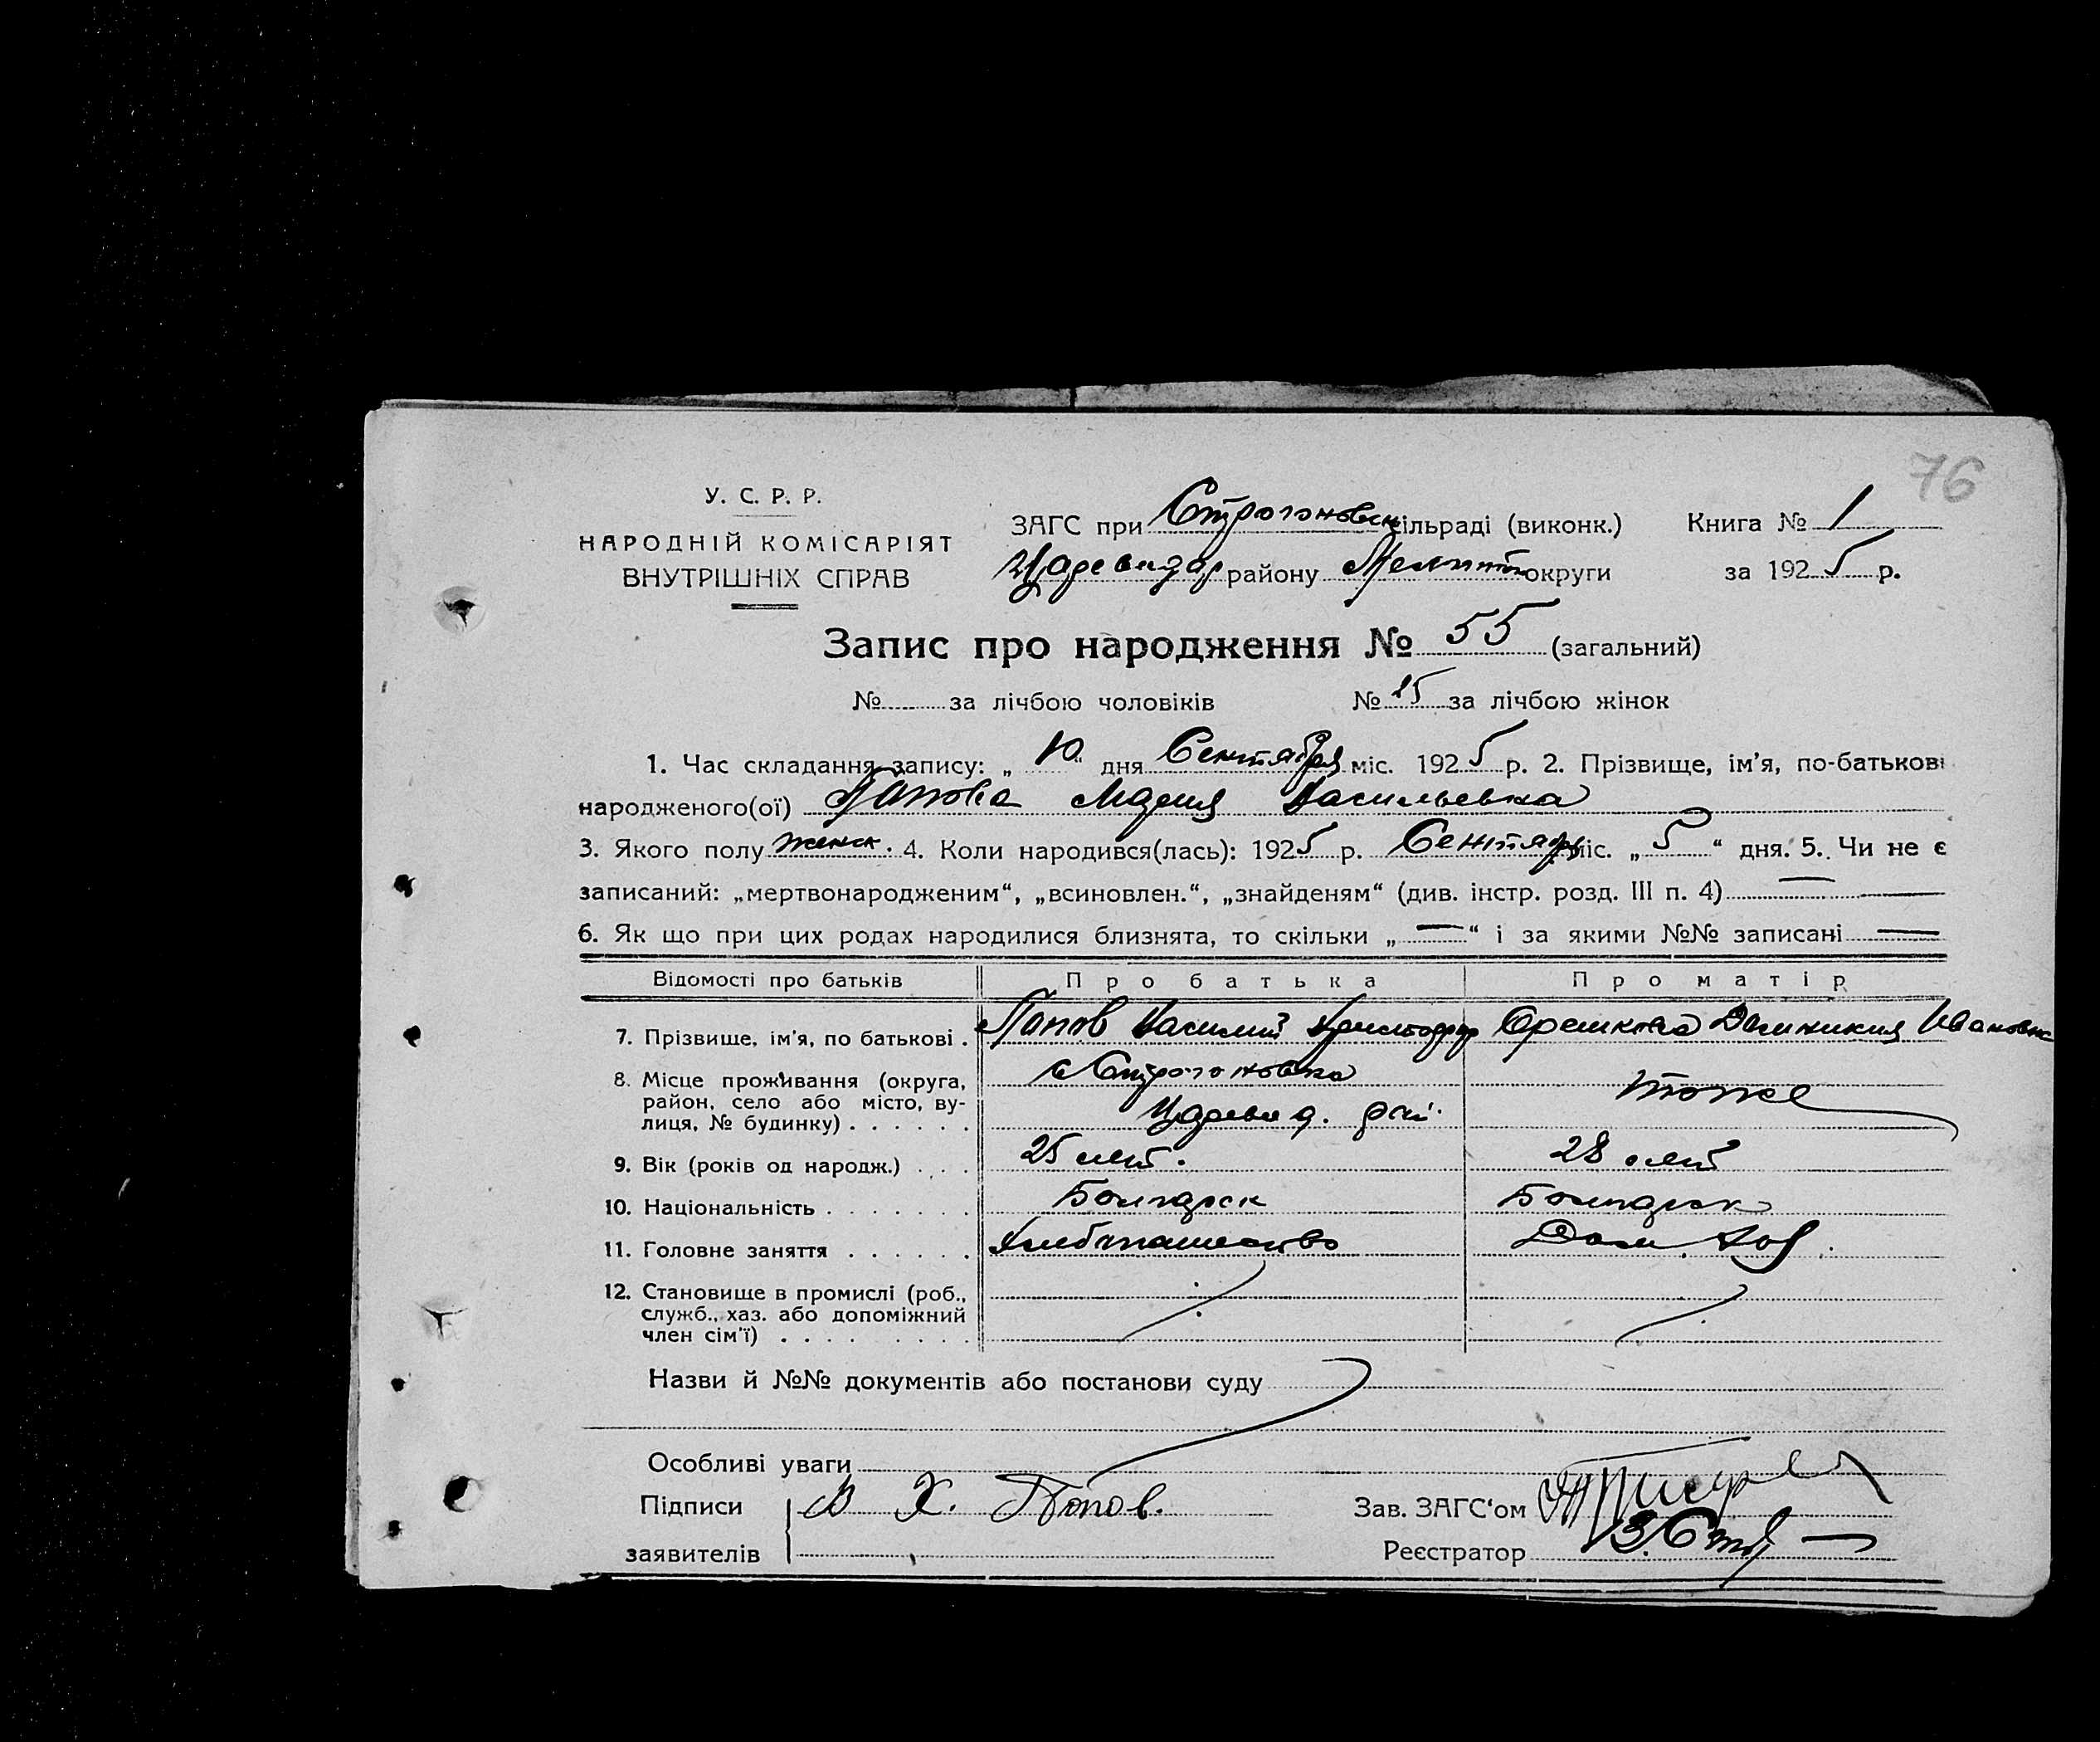 76
У. С. Р. Р.
НАРОДНІЙ КОМІСАРІЯТ
ВНУТРІШНІХ СПРАВ
ЗАГС при Строгоновск сільраді (виконк.) Книга № 1
Цареводар району Мелитоп округи за 1925 р.
Запис про народження № 55 (загальний)
№ за лічбою чоловіків № 25 за лічбою жінок
1. Час складання запису: „10“ дня Сентября міс. 1925 р. 2. Прізвище, ім'я, по-батькові
народженого(ої) Папова Мария Васильевна
3. Якого полу женск. 4. Коли народився(лась): 1925 р. Сентярь міс. „5“ дня. 5. Чи не є
записаний: „мертвонародженим“, „всиновлен.“, „знайденям“ (див. інстр. розд. III п. 4) —
6. Як що при цих родах народилися близнята, то скільки „—“ і за якими №№ записані —
Відомості про батьків Про батька Про матір
7. Прізвище, ім'я, по батькові . Папов Василий Христофор Орешкова Доминикия Ивановн
8. Місце проживання (округа, с Строгоновка
район, село або місто, ву- тоже
лиця, № будинку) . . . . . . Царевод. рай.
9. Вік (років од народж.) . . . 25 лет. 28 лет
10. Національність . . . . . . . Болгарск Болгарск
11. Головне заняття . . . . . . Хлебопашество Дом. Хоз.
12. Становище в промислі (роб.,
служб., хаз. або допоміжний
член сім'ї) . . . . . . . . .
Назви й №№ документів або постанови суду
Особливі уваги
Підписи В Х. Попов. Зав. ЗАГС'ом
заявителів Реєстратор